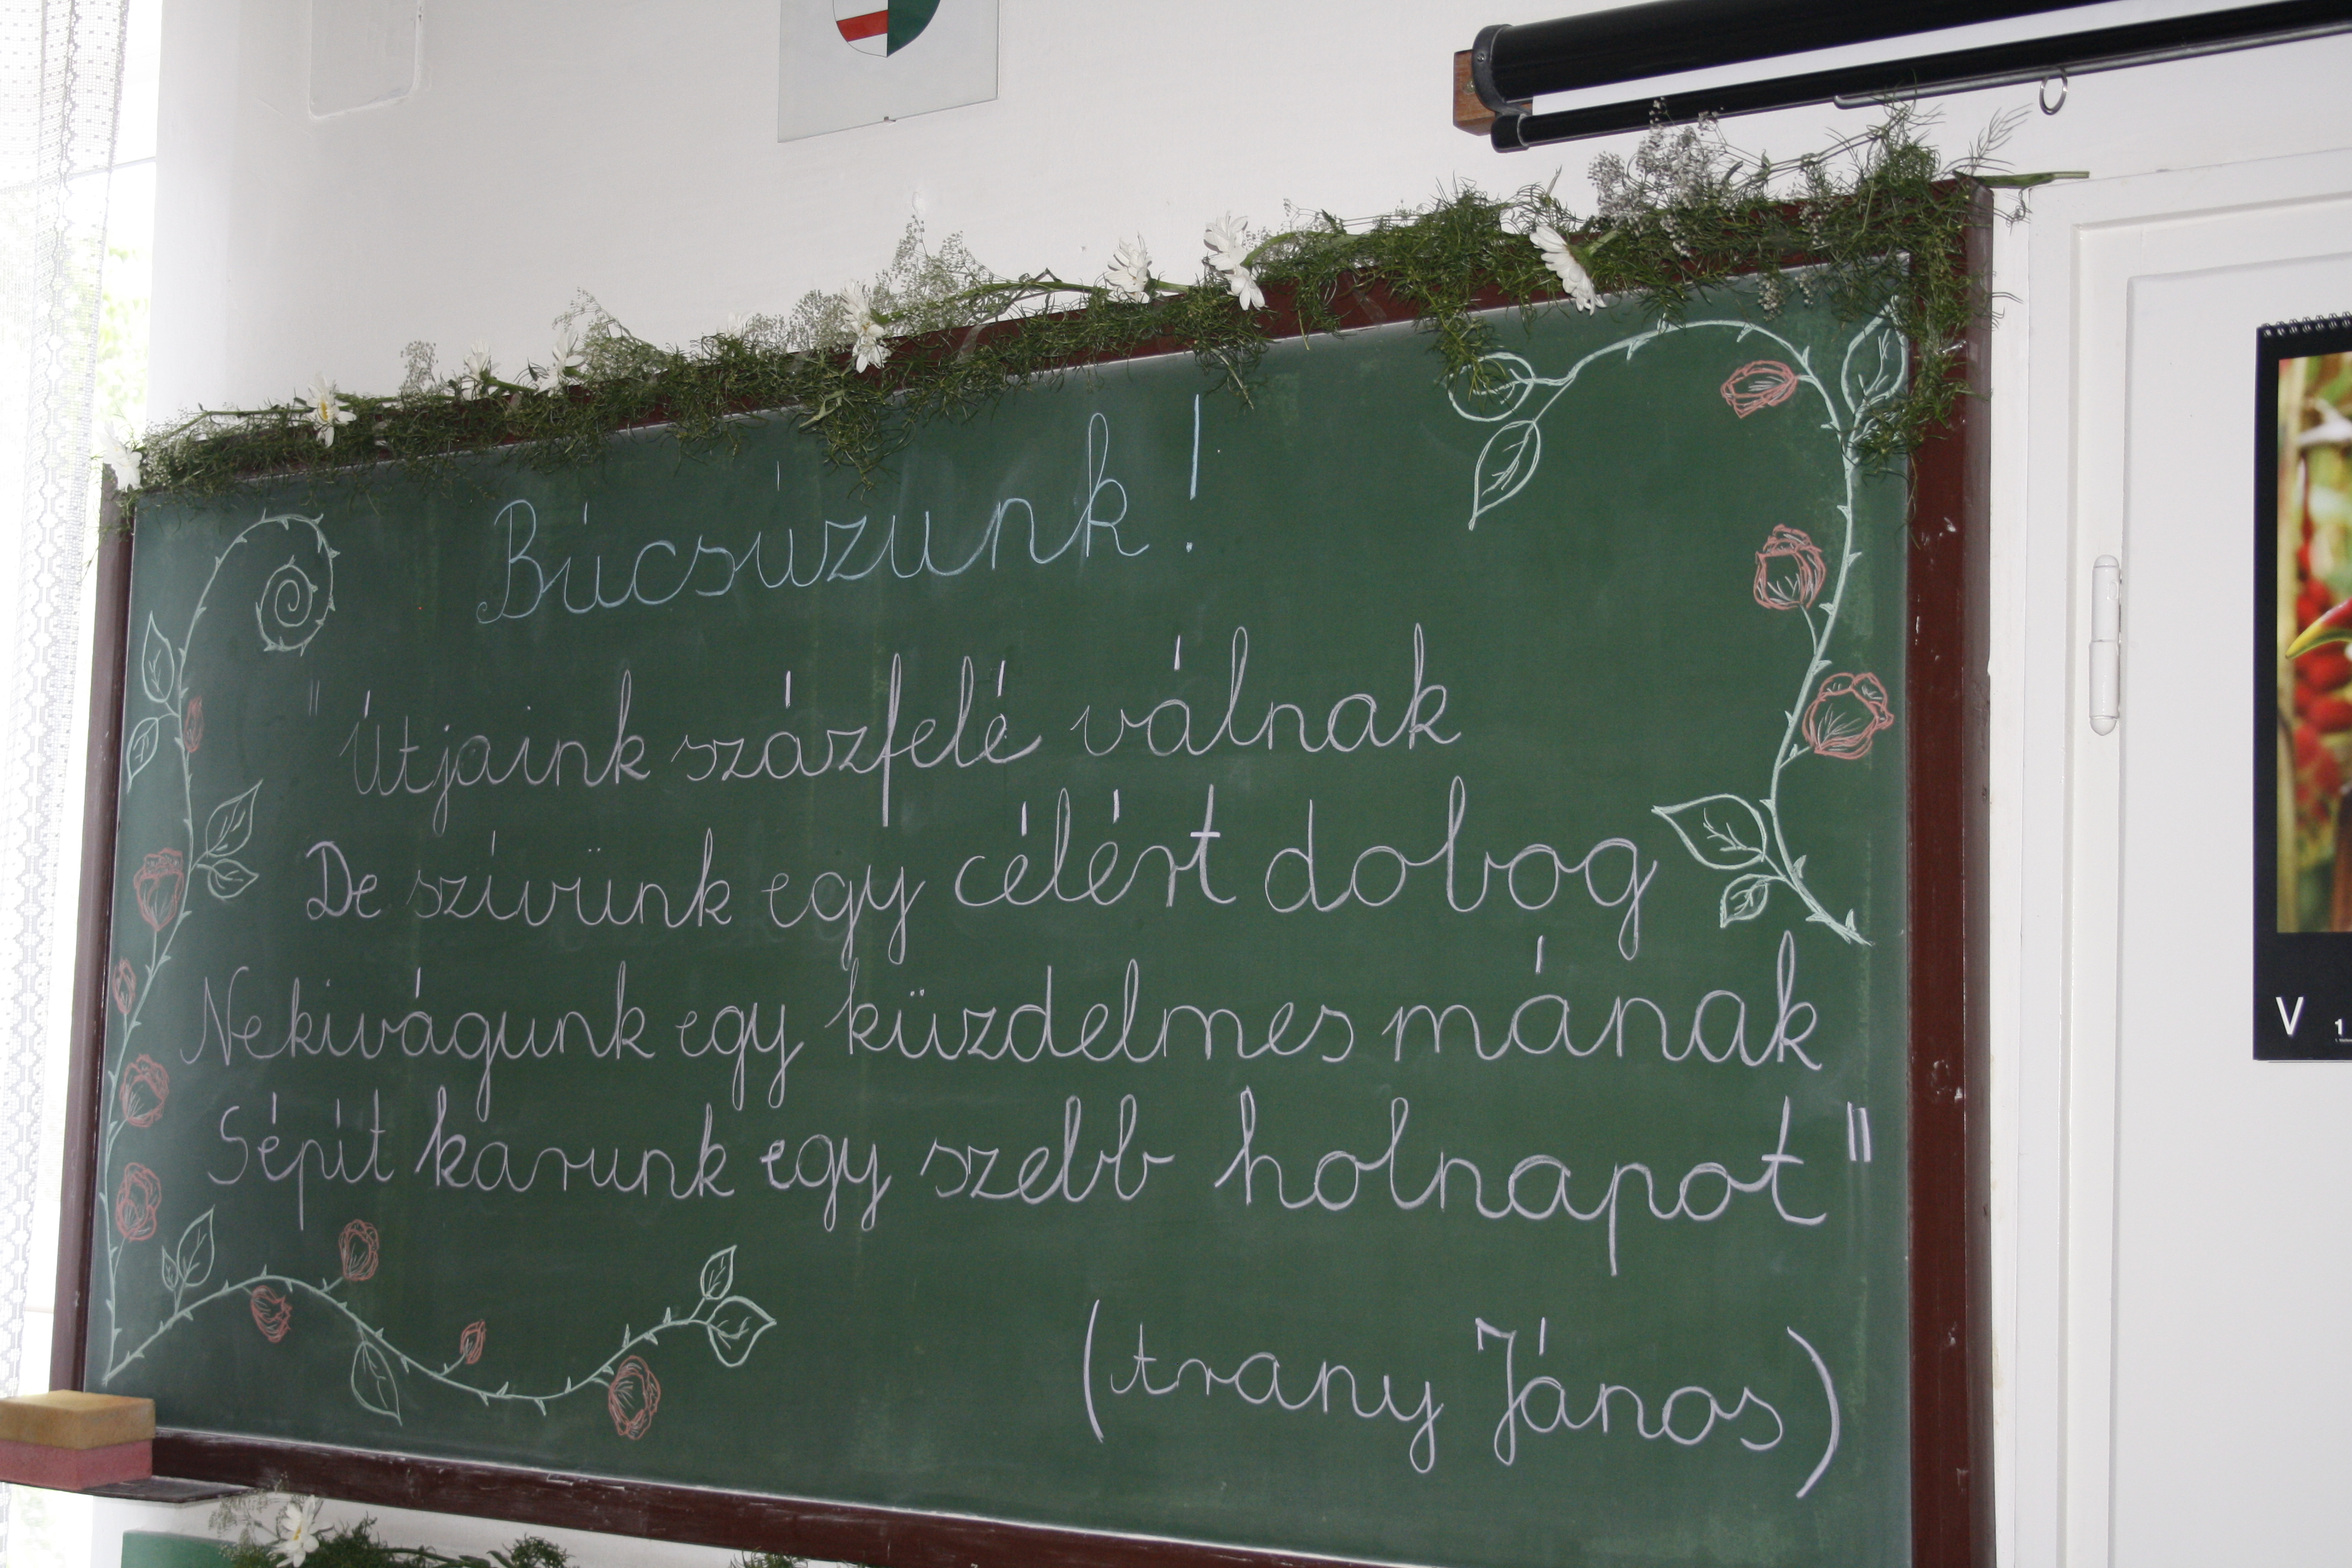 Búcsúzunk!
" Útjaink százfelé válnak
De szívünk egy célért dobog
Nekivágunk egy küzdelmes mának
Sépít karunk egy szebb holnapot"
(trany János)
V
1